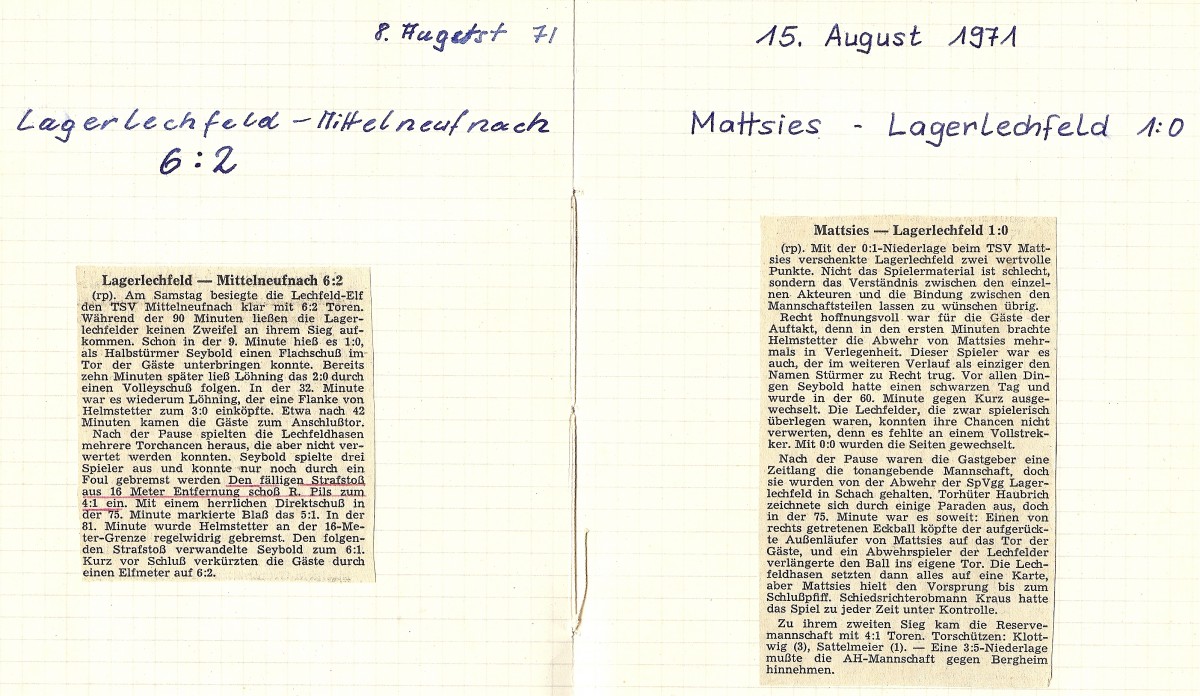 8. Augetst 71
Lagerlechfeld - Mittelneufnach
6:2
Lagerlechfeld — Mittelneufnach 6:2
(rp). Am Samstag besiegte die Lechfeld-Elf
den TSV Mittelneufnach klar mit 6:2 Toren.
Während der 90 Minuten ließen die Lager-
lechfelder keinen Zweifel an ihrem Sieg auf-
kommen. Schon in der 9. Minute hieß es 1:0,
als Halbstürmer Seybold einen Flachschuß im
Tor der Gäste unterbringen konnte. Bereits
zehn Minuten später ließ Löhning das 2:0 durch
einen Volleyschuß folgen. In der 32. Minute
war es wiederum Löhning, der eine Flanke von
Helmstetter zum 3:0 einköpfte. Etwa nach 42
Minuten kamen die Gäste zum Anschlußtor.
Nach der Pause spielten die Lechfeldhasen
mehrere Torchancen heraus, die aber nicht ver-
wertet werden konnten. Seybold spielte drei
Spieler aus und konnte nur noch durch ein
Foul gebremst werden Den fälligen Strafstoß
aus 16 Meter Entfernung schoß R. Pils zum
4:1 ein. Mit einem herrlichen Direktschuß in
der 75. Minute markierte Blaß das 5:1. In der
81. Minute wurde Helmstetter an der 16-Me-
ter-Grenze regelwidrig gebremst. Den folgen-
den Strafstoß verwandelte Seybold zum 6:1.
Kurz vor Schluß verkürzten die Gäste durch
einen Elfmeter auf 6:2.
15. August 1971
Mattsies - Lagerlechfeld 1:0
Mattsies — Lagerlechfeld 1:0
(rp). Mit der 0:1-Niederlage beim TSV Matt-
sies verschenkte Lagerlechfeld zwei wertvolle
Punkte. Nicht das Spielermaterial ist schlecht,
sondern das Verständnis zwischen den einzel-
nen Akteuren und die Bindung zwischen den
Mannschaftsteilen lassen zu wünschen übrig.
Recht hoffnungsvoll war für die Gäste der
Auftakt, denn in den ersten Minuten brachte
Helmstetter die Abwehr von Mattsies mehr-
mals in Verlegenheit. Dieser Spieler war es
auch, der im weiteren Verlauf als einziger den
Namen Stürmer zu Recht trug. Vor allen Din-
gen Seybold hatte einen schwarzen Tag und
wurde in der 60. Minute gegen Kurz ausge-
wechselt. Die Lechfelder, die zwar spielerisch
überlegen waren, konnten ihre Chancen nicht
verwerten, denn es fehlte an einem Vollstrek-
ker. Mit 0:0 wurden die Seiten gewechselt.
Nach der Pause waren die Gastgeber eine
Zeitlang die tonangebende Mannschaft, doch
sie wurden von der Abwehr der SpVgg Lager-
lechfeld in Schach gehalten. Torhüter Haubrich
zeichnete sich durch einige Paraden aus, doch
in der 75. Minute war es soweit: Einen von
rechts getretenen Eckball köpfte der aufgerück-
te Außenläufer von Mattsies auf das Tor der
Gäste, und ein Abwehrspieler der Lechfelder
verlängerte den Ball ins eigene Tor. Die Lech-
feldhasen setzten dann alles auf eine Karte,
aber Mattsies hielt den Vorsprung bis zum
Schlußpfiff. Schiedsrichterobmann Kraus hatte
das Spiel zu jeder Zeit unter Kontrolle.
Zu ihrem zweiten Sieg kam die Reserve-
mannschaft mit 4:1 Toren. Torschützen: Klott-
wig (3), Sattelmeier (1). — Eine 3:5-Niederlage
mußte die AH-Mannschaft gegen Bergheim
hinnehmen.